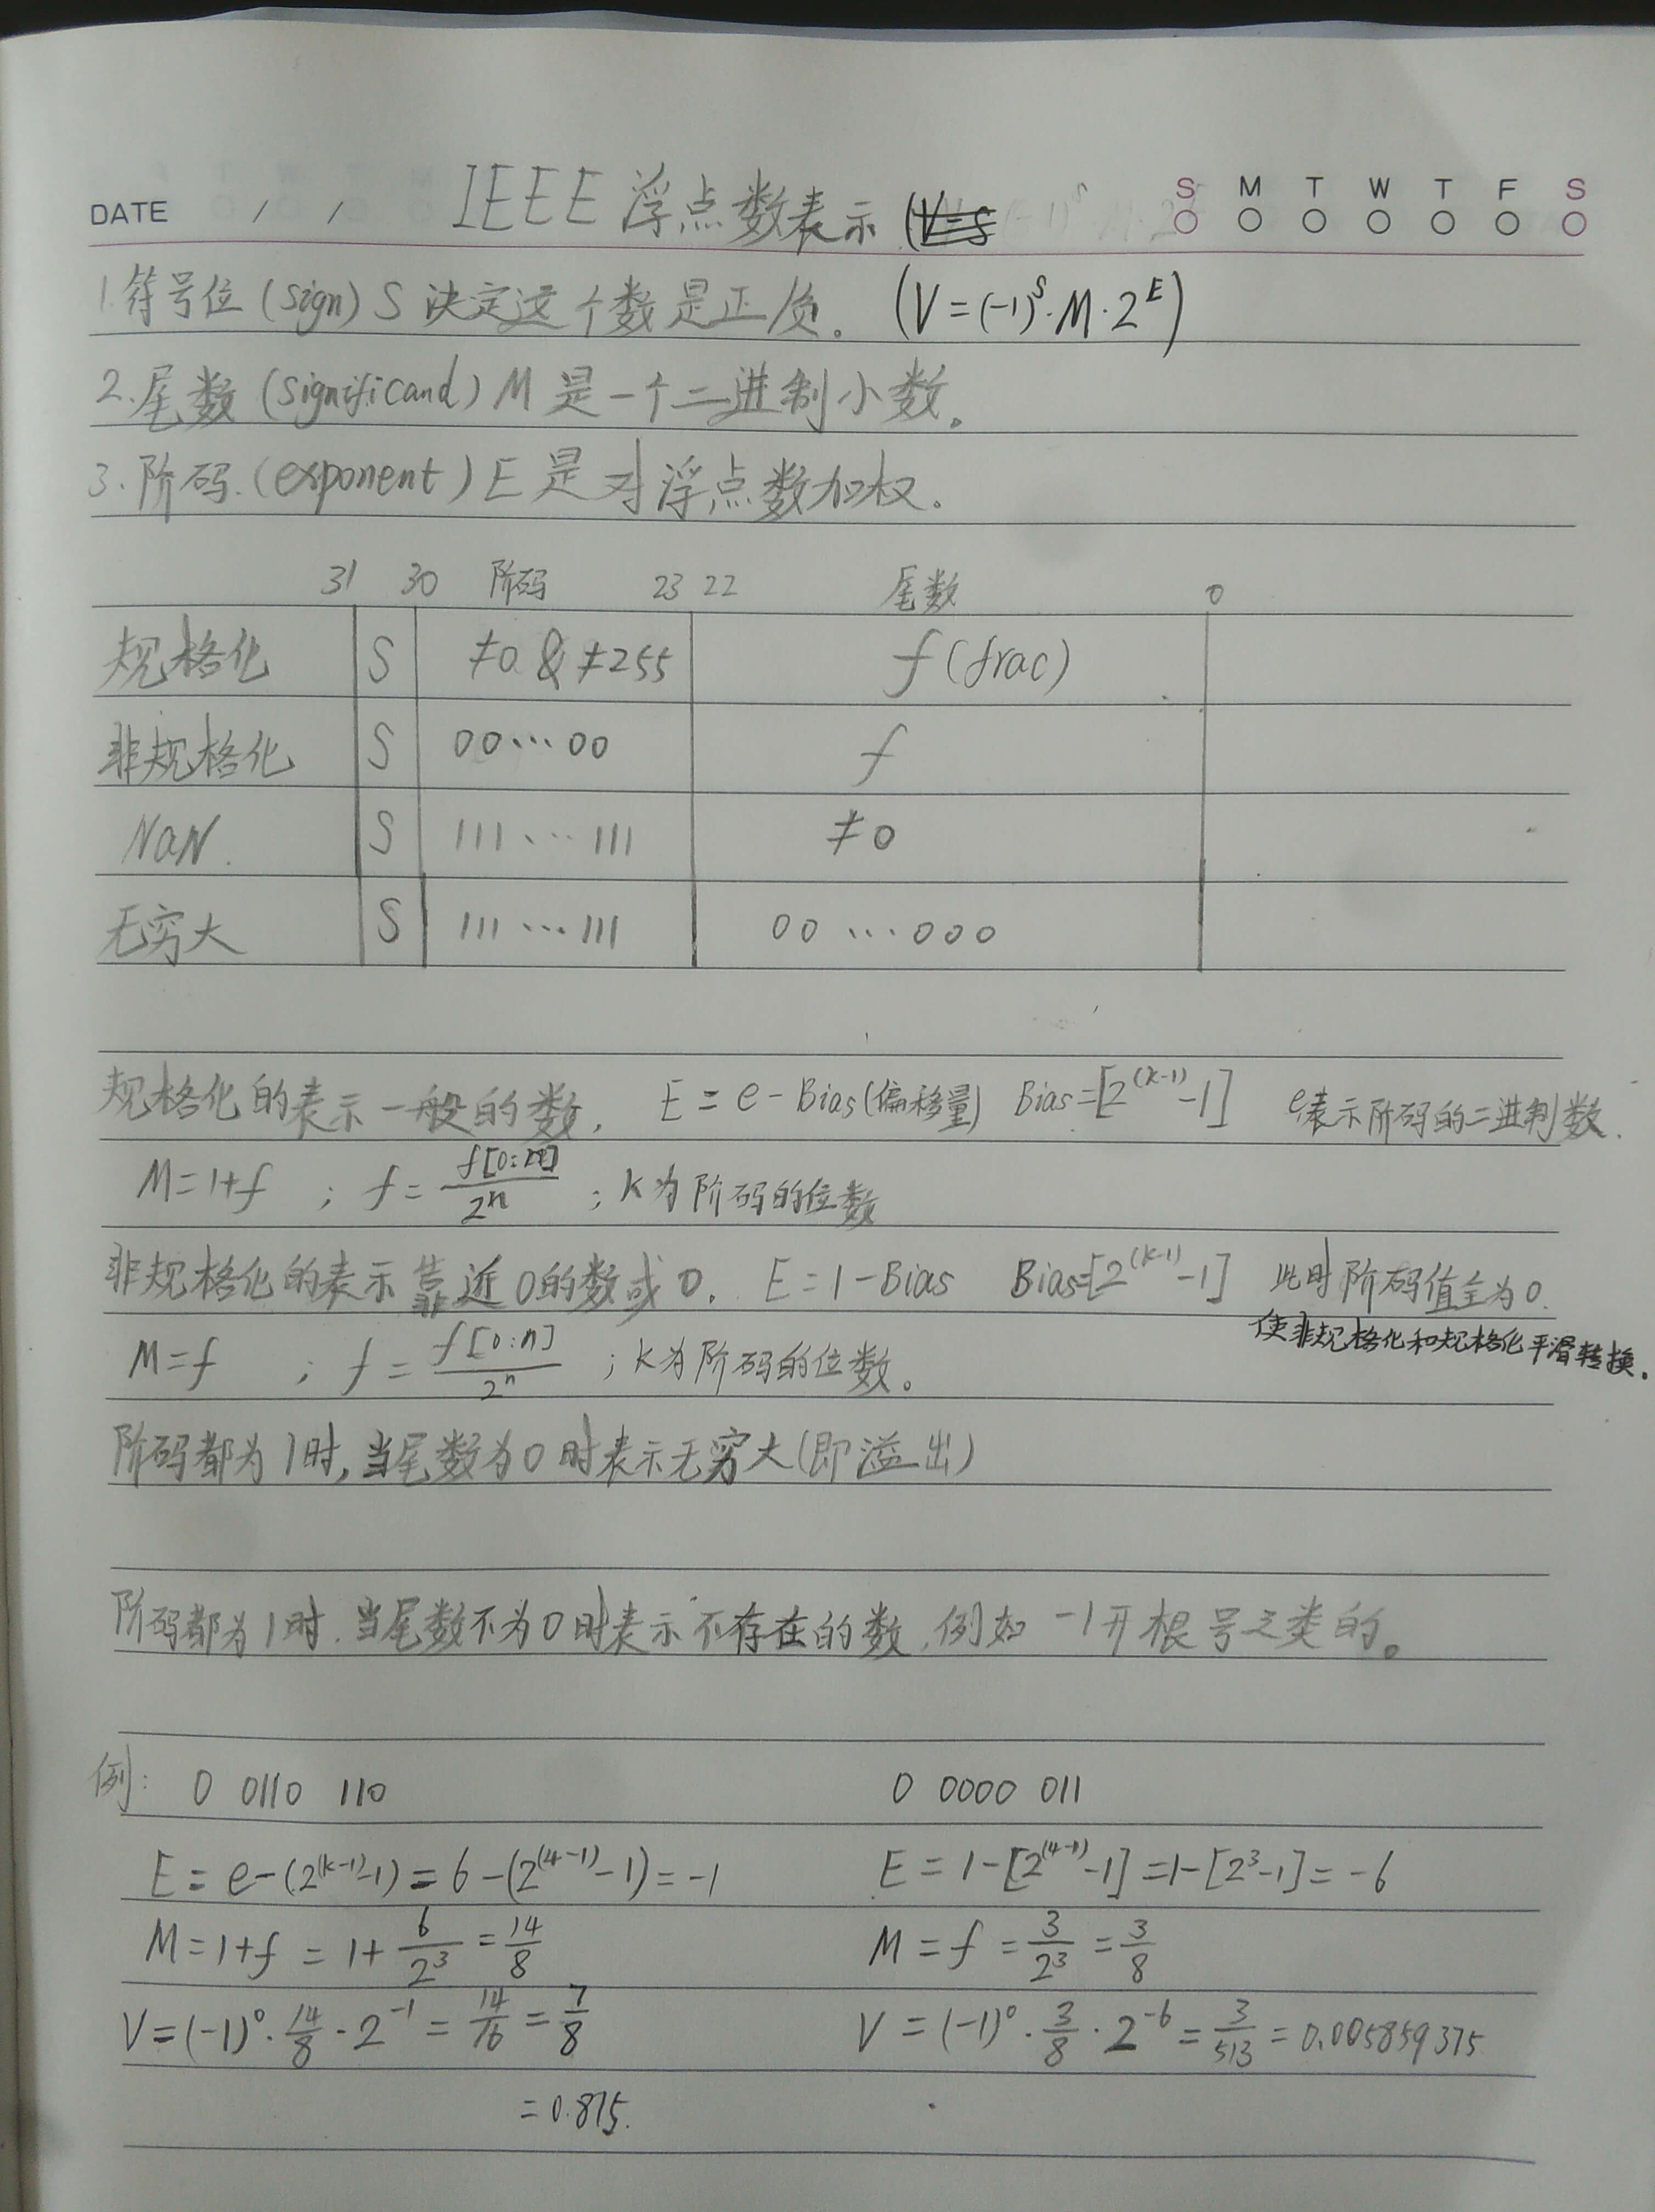 DATE / / IEEE 浮点数表示 S M T W T F S
1.符号位(sign) S 决定这个数是正/负。 (V=(-1)^S·M·2^E)
2.尾数(significand) M 是一个二进制小数。
3.阶码.(exponent) E 是对浮点数加权。
31 30 阶码 23 22 尾数 0
规格化 S ≠0 & ≠255 f(frac)
非规格化 S 00···00 f
NaN. S 111···111 ≠0
无穷大 S 111···111 00···000
规格化的表示一般的数, E=e-Bias(偏移量) Bias=[2^(k-1)-1] e表示阶码的二进制数.
M=1+f ; f=f[0:n]/2^n ; k为阶码的位数
非规格化的表示靠近0的数或0. E=1-Bias Bias=[2^(k-1)-1] 此时阶码值全为0.
使非规格化和规格化平滑转换.
M=f ; f=f[0:n]/2^n ; k为阶码的位数。
阶码都为1时,当尾数为0时表示无穷大(即溢出)
阶码都为1时.当尾数不为0时表示不存在的数,例如 -1开根号之类的。
例: 0 0110 110 0 0000 011
E=e-(2^(k-1)-1)=6-(2^(4-1)-1)=-1 E=1-[2^(4-1)-1]=1-[2^3-1]=-6
M=1+f=1+6/2^3=14/8 M=f=3/2^3=3/8
V=(-1)^0·14/8·2^-1=14/16=7/8 V=(-1)^0·3/8·2^-6=3/513=0.005859375
=0.875.